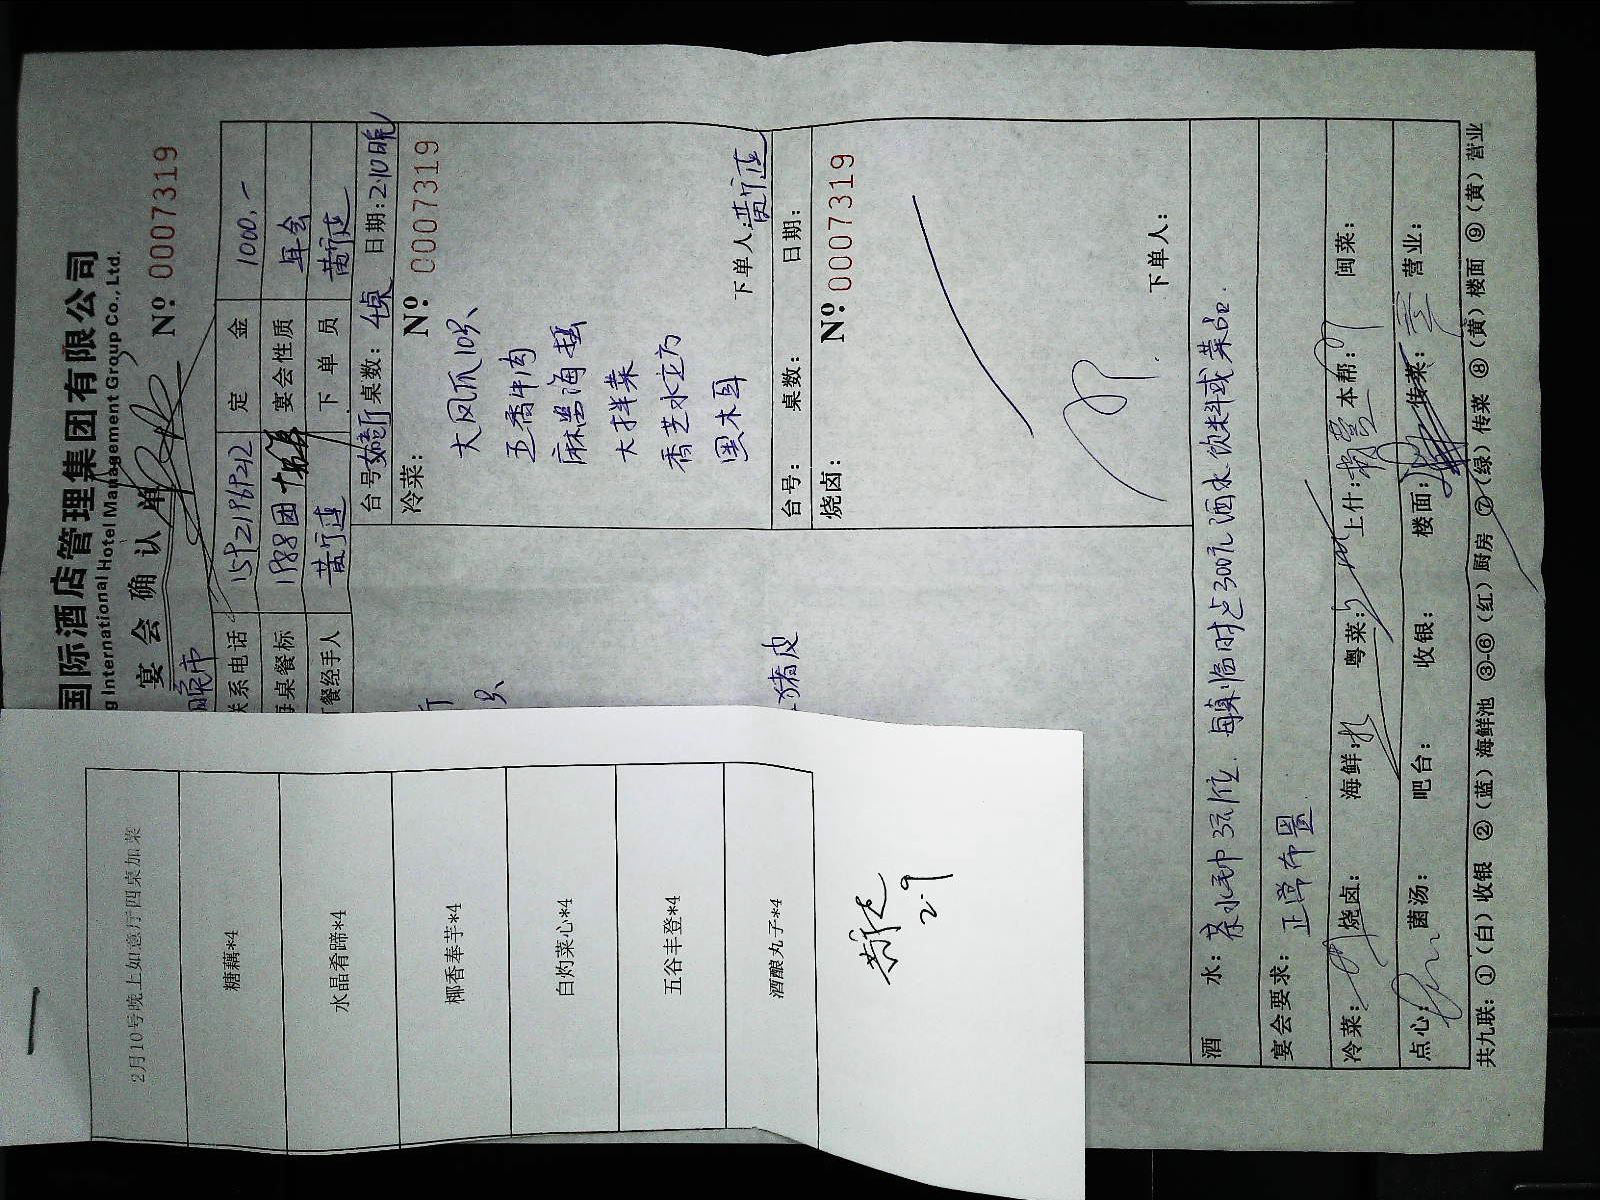 国际酒店管理集团有限公司
g International Hotel Management Group Co., Ltd.
宴会确认单
Nº 0007319
晚市
联系电话
定金 1000.-
每桌餐标 1988团
宴会性质 年会
订餐经手人
下单员
台号: 桌数: 4桌 日期: 2.10晚
冷菜: Nº 0007319
大凤爪10只
五香牛肉
麻酱海蜇
大拌菜
香芝水立方
黑木耳
下单人:
斤
只
猪皮
台号: 桌数: 日期:
烧卤: Nº 0007319
下单人:
酒水: 茶水毛巾 3元/位. 每桌临时占300元酒水饮料或菜品.
宴会要求: 正常布置.
冷菜: 烧卤: 海鲜: 粤菜: 上什: 本帮: 闽菜:
点心: 菌汤: 吧台: 收银: 楼面: 传菜: 营业:
共九联: ①(白)收银 ②(蓝)海鲜池 ③-⑥(红)厨房 ⑦(绿)传菜 ⑧(黄)楼面 ⑨(黄)营业
2月10号晚上如意厅四桌加菜
糖藕*4
水晶肴蹄*4
椰香奉芋*4
白灼菜心*4
五谷丰登*4
酒酿丸子*4
2.9